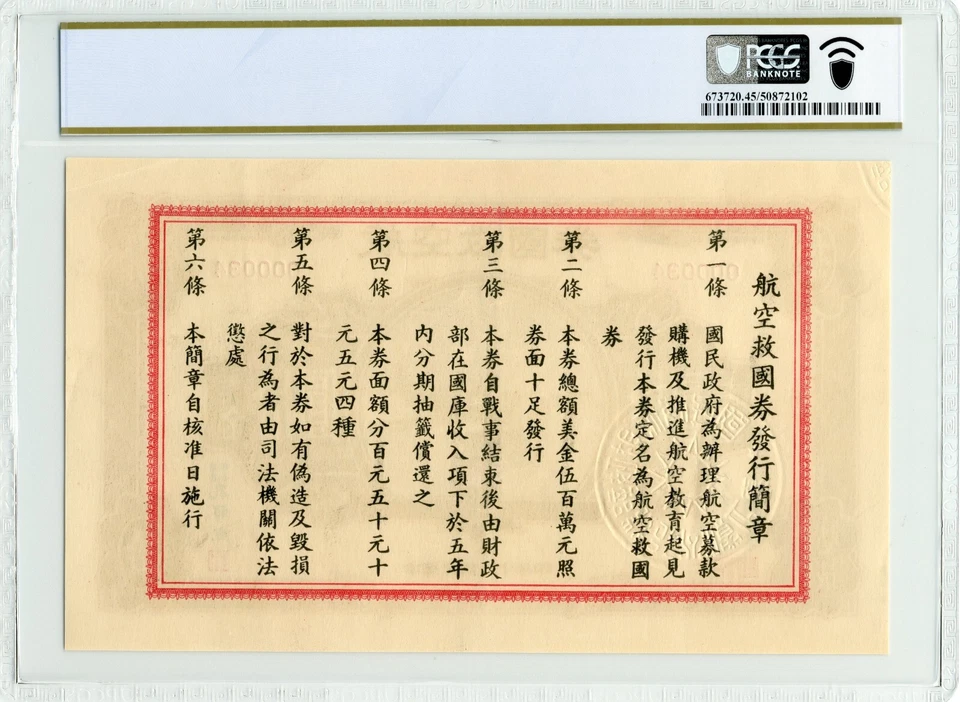 PCGS
BANKNOTE
673720.45/50872102
航空救國券發行簡章
第一條
國民政府為辦理航空募款
購機及推進航空教育起見
發行本券定名為航空救國
券
第二條
本券總額美金伍百萬元照
券面十足發行
第三條
本券自戰事結束後由財政
部在國庫收入項下於五年
內分期抽籤償還之
第四條
本券面額分百元五十元十
元五元四種
第五條
對於本券如有偽造及毀損
之行為者由司法機關依法
懲處
第六條
本簡章自核准日施行